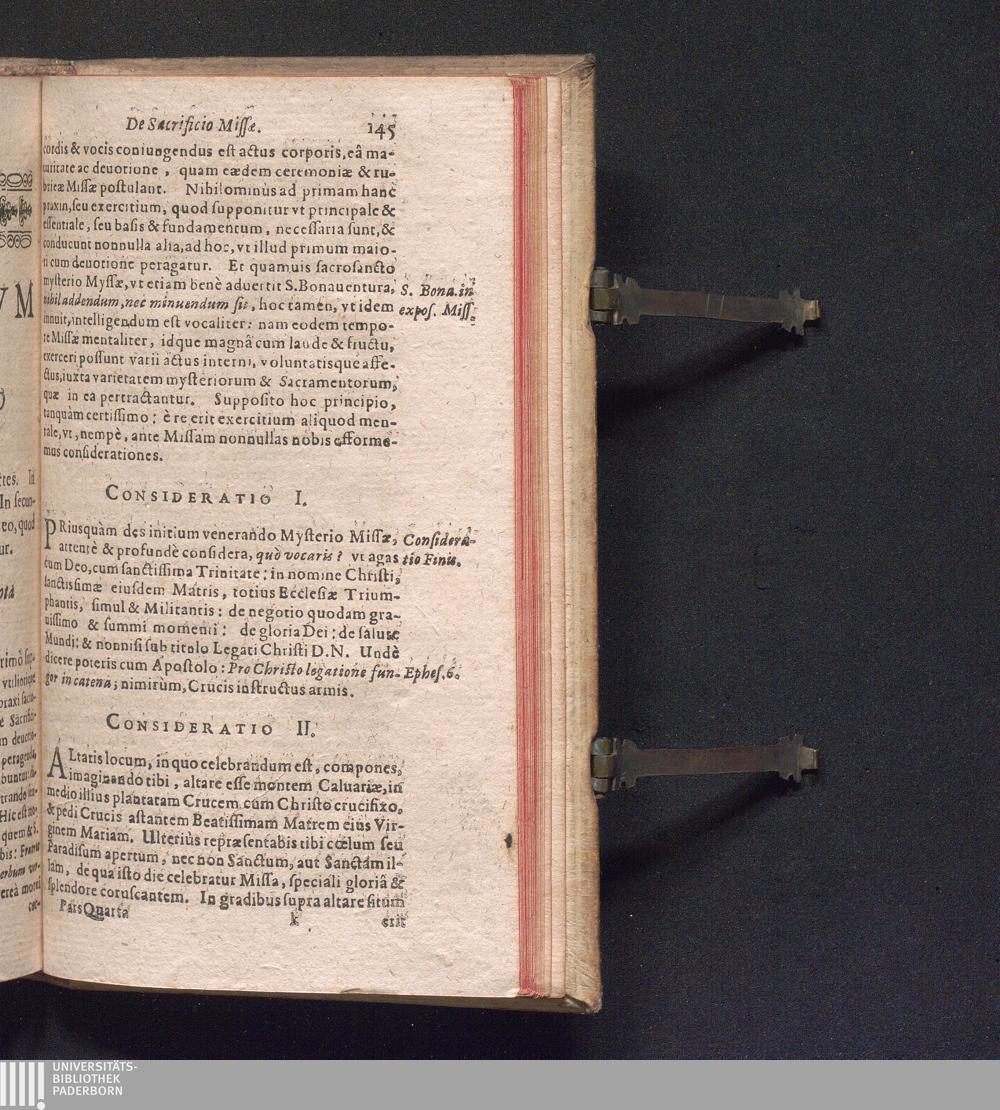 De Sacrificio Missæ. 145
cordis & vocis coniungendus est actus corporis, eâ ma-
turitate ac deuotione, quam eædem ceremoniæ & ru-
bricæ Missæ postulant. Nihilominùs ad primam hanc
praxin, seu exercitium, quod supponitur vt principale &
essentiale, seu basis & fundamentum, necessaria sunt, &
conducunt nonnulla alia, ad hoc, vt illud primum maio-
ri cum deuotione peragatur. Et quamuis sacrosancto
mysterio Myssæ, vt etiam benè aduertit S. Bonauentura,
nihil addendum, nec minuendum sit, hoc tamen, vt idem
innuit, intelligendum est vocaliter: nam eodem tempo-
re Missæ mentaliter, idque magnâ cum laude & fructu,
exerceri possunt varii actus interni, voluntatisque affe-
ctus, iuxta varietatem mysteriorum & Sacramentorum,
quæ in ea pertractantur. Supposito hoc principio,
tanquàm certissimo: è re erit exercitium aliquod men-
tale, vt, nempè, ante Missam nonnullas nobis efforme-
mus considerationes.
S. Bona. in
expos. Miss.
CONSIDERATIO I.
PRiusquàm des initium venerando Mysterio Missæ,
attentè & profundè considera, quò vocaris? vt agas
cum Deo, cum sanctissima Trinitate: in nomine Christi,
sanctissimæ eiusdem Matris, totius Ecclesiæ Trium-
phantis, simul & Militantis: de negotio quodam gra-
uissimo & summi momenti: de gloria Dei: de salute
Mundi: & nonnisi sub titolo Legati Christi D. N. Undè
dicere poteris cum Apostolo: Pro Christo legatione fun-
gor in catena; nimirùm, Crucis instructus armis.
Considera-
tio Finis.
Ephes. 6.
CONSIDERATIO II.
ALtaris locum, in quo celebrandum est, compones,
imaginando tibi, altare esse montem Caluariæ, in
medio illius plantatam Crucem cum Christo crucifixo,
& pedi Crucis astantem Beatissimam Matrem eius Vir-
ginem Mariam. Ulteriùs repræsentabis tibi cœlum seu
Paradisum apertum, nec non Sanctum, aut Sanctam il-
lam, de qua isto die celebratur Missa, speciali gloriâ &
splendore coruscantem. In gradibus supra altare situm
Pars Quarta k erit
UNIVERSITÄTS-
BIBLIOTHEK
PADERBORN